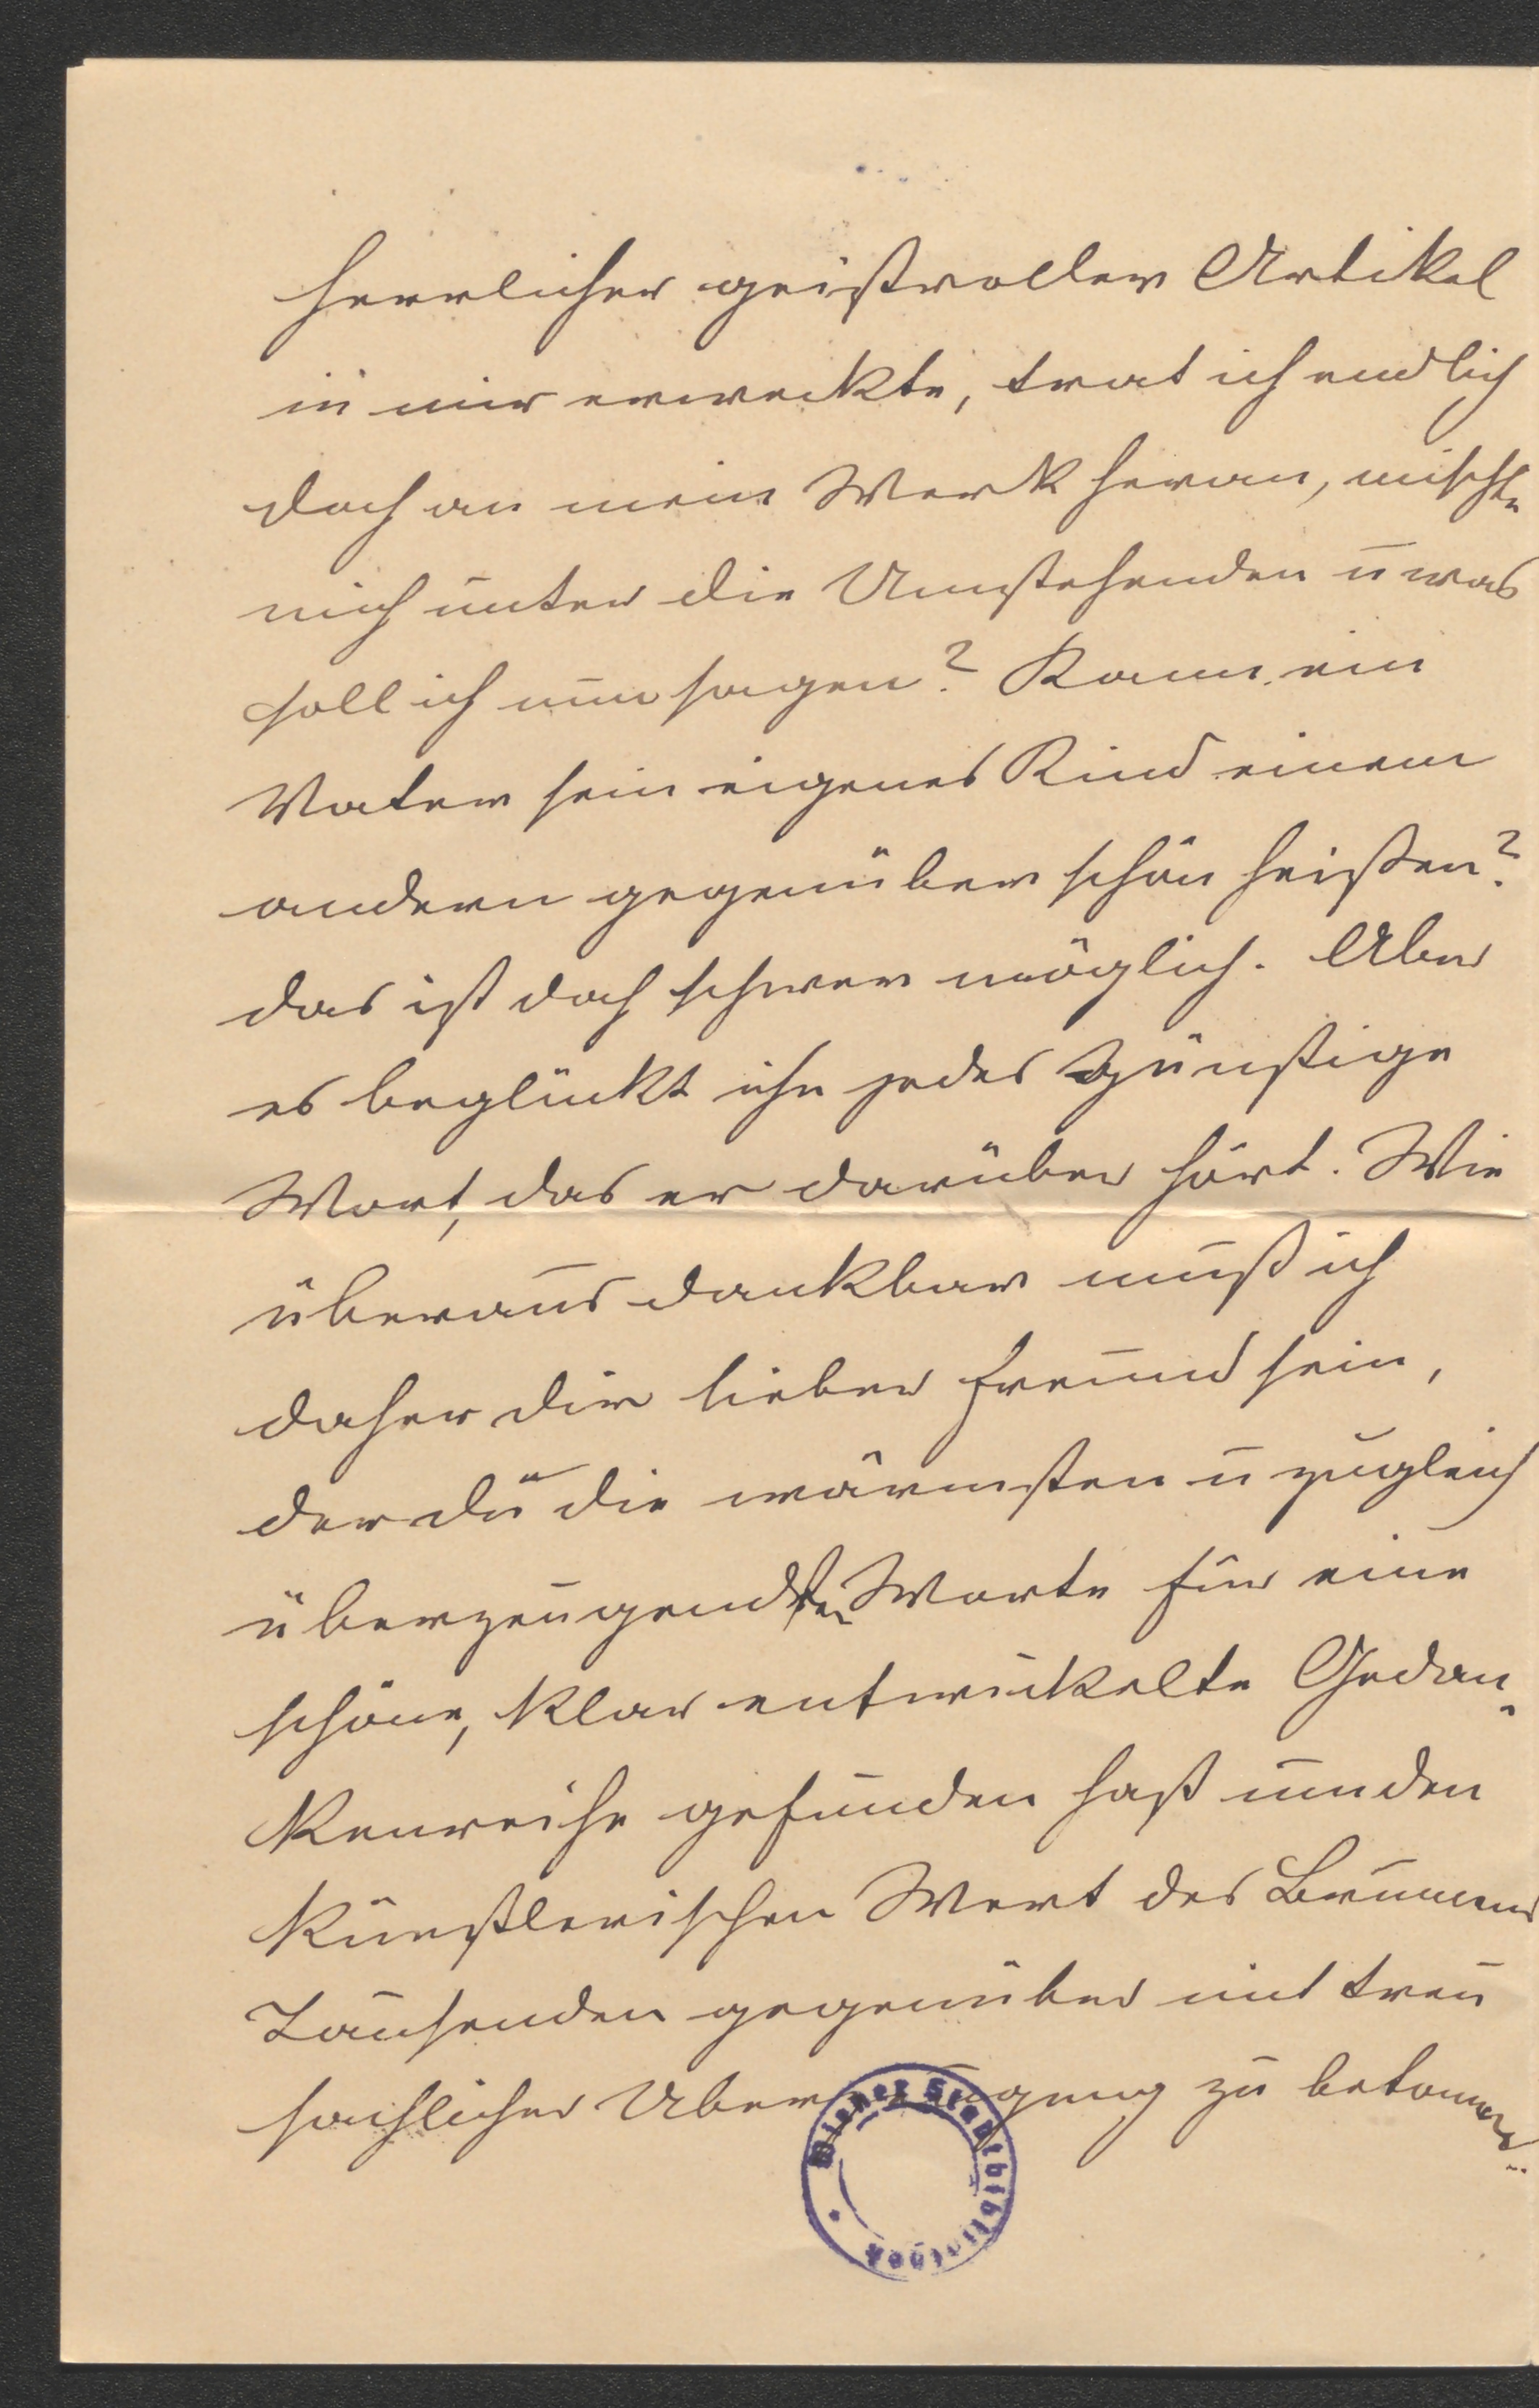 herrlicher geistvoller Artikel
in mir erweckte, trat ich endlich
doch an mein Werk heran, mischte
mich unter die Umstehenden u was
soll ich nun sagen? Kann ein
Vater sein eigenes Kind einem
andern gegenüber schön heißen?
das ist doch schwer möglich. Aber
es beglückt ihn jedes günstige
Wort, das er darüber hört. Wie
überaus dankbar muß ich
daher dir lieber Freund sein,
der du die wärmsten u zugleich
überzeugendsten Worte für eine
schöne, klar entwickelte Gedan-
kenreihe gefunden hast um den
künstlerischen Wert des Brunnens
Tausenden gegenüber mit treu
sachlicher Uberzeugung zu betonen
Wiener Stadtbibliothek